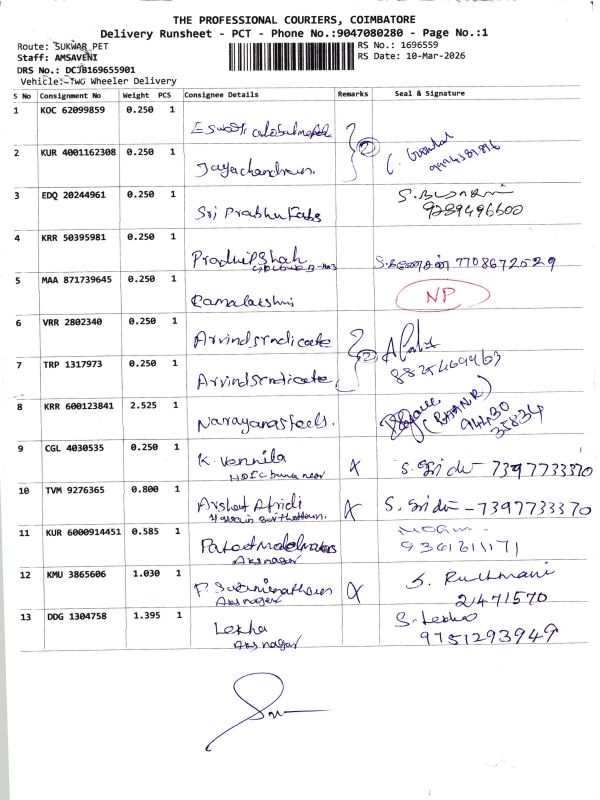 THE PROFESSIONAL COURIERS, COIMBATORE
Delivery Runsheet - PCT - Phone No.:9047080280 - Page No.:1
Route: SUKWAR PET
RS No.: 1696559
Staff: AMSAVENI
RS Date: 10-Mar-2026
DRS No.: DCJB169655901
Vehicle:-Two Wheeler Delivery
S No Consignment No Weight PCS Consignee Details Remarks Seal & Signature
1 KOC 62099859 0.250 1
2 KUR 4001162308 0.250 1 Jayachandran. 2
3 EDQ 20244961 0.250 1 Sri Prabhu Fabs 9289496600
4 KRR 50395981 0.250 1 Pradhip Shah 7708672529
5 MAA 871739645 0.250 1 Ramalakshmi NP
6 VRR 2802340 0.250 1 Arvind syndicate 2
7 TRP 1317973 0.250 1 Arvind syndicate 8825469963
8 KRR 600123841 2.525 1 Narayana steels. 94430 35834
9 CGL 4030535 0.250 1 K. Vennila X S. ஸ்ரீதர் - 7397733370
HDFC bank near
10 TVM 9276365 0.800 1 Arshat Afridi X S. ஸ்ரீதர் - 7397733370
11 KUR 6000914451 0.585 1 9361611171
AKS nagar
12 KMU 3865606 1.030 1 X S. Rukmani
AKS nagar 2471570
13 DDG 1304758 1.395 1 Lekha S. Lekha
AKS nagar 9751293949